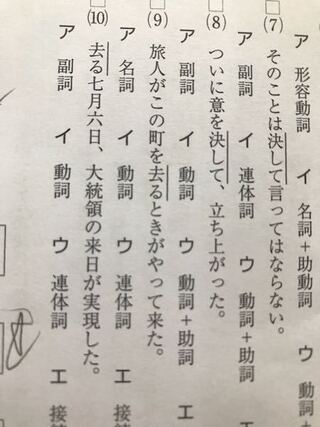 ア 形容動詞 イ 名詞＋助動詞 ウ 動詞＋
□(7) そのことは決して言ってはならない。
ア 副詞 イ 連体詞 ウ 動詞＋助詞 エ
□(8) ついに意を決して、立ち上がった。
ア 副詞 イ 動詞 ウ 動詞＋助詞 エ
□(9) 旅人がこの町を去るときがやって来た。
ア 名詞 イ 動詞 ウ 連体詞 エ 接続
□(10) 去る七月六日、大統領の来日が実現した。
ア 副詞 イ 動詞 ウ 連体詞 エ 接